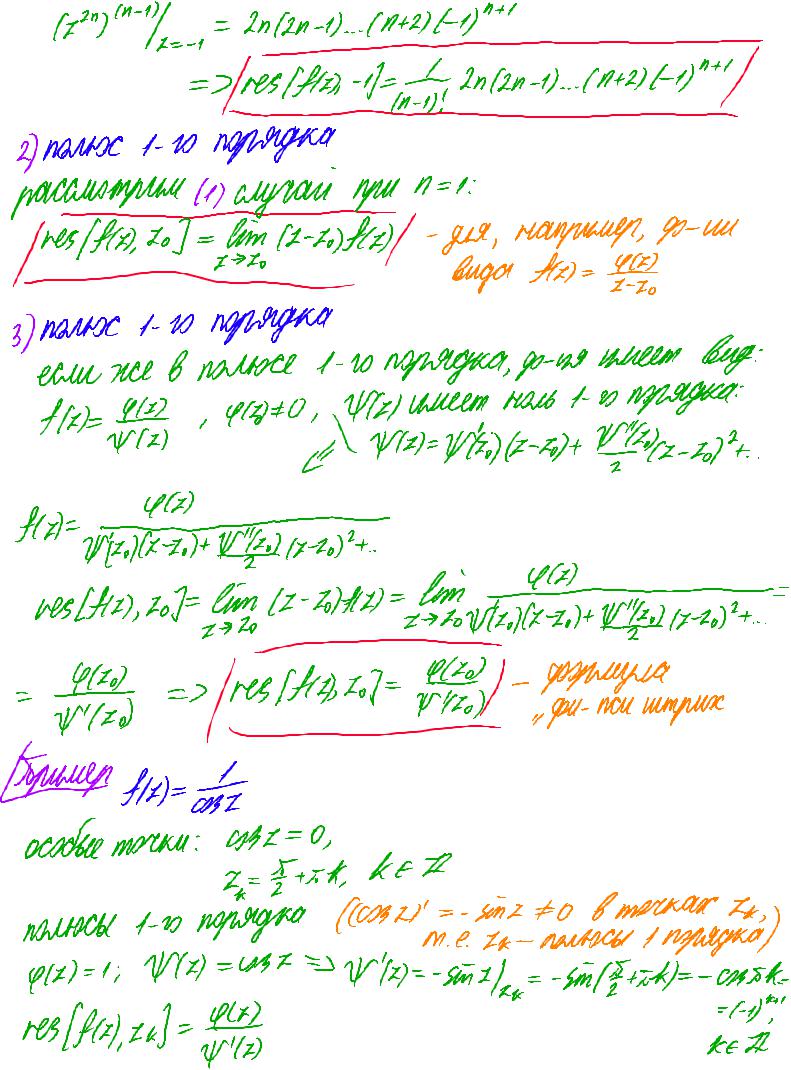 (z^{2n})^{(n-1)}|_{z=-1} = 2n(2n-1)...(n+2)(-1)^{n+1}
=> res[f(z), -1] = \frac{1}{(n-1)!} 2n(2n-1)...(n+2)(-1)^{n+1}
2) полюс 1-го порядка
рассмотрим (1) случай при n=1:
res[f(z), z_0] = lim_{z→z_0} (z-z_0)f(z) - для, например, ф-ии
вида f(z) = \frac{φ(z)}{z-z_0}
3) полюс 1-го порядка
если же в полюсе 1-го порядка, ф-ия имеет вид:
f(z) = \frac{φ(z)}{ψ(z)}, φ(z_0)≠0, ψ(z) имеет ноль 1-го порядка:
ψ(z) = ψ'(z_0)(z-z_0) + \frac{ψ''(z_0)}{2}(z-z_0)^2+...
f(z) = \frac{φ(z)}{ψ'(z_0)(z-z_0) + \frac{ψ''(z_0)}{2}(z-z_0)^2+...}
res[f(z), z_0] = lim_{z→z_0} (z-z_0)f(z) = lim_{z→z_0} \frac{φ(z)}{ψ'(z_0)(z-z_0) + \frac{ψ''(z_0)}{2}(z-z_0)^2+...} =
= \frac{φ(z_0)}{ψ'(z_0)} => res[f(z), z_0] = \frac{φ(z_0)}{ψ'(z_0)} - формула
„фи-пси штрих
Пример f(z) = \frac{1}{cos z}
особые точки: cos z = 0,
z_k = \frac{π}{2} + πk, k ∈ ℤ
полюсы 1-го порядка ((cos z)' = -sin z ≠ 0 в точках z_k,
т.е. z_k - полюсы 1 порядка)
φ(z) = 1; ψ(z) = cos z => ψ'(z) = -sin z|_{z_k} = -sin(\frac{π}{2}+πk) = -cos πk =
= (-1)^{k+1},
k ∈ ℤ
res[f(z), z_k] = \frac{φ(z)}{ψ'(z)}